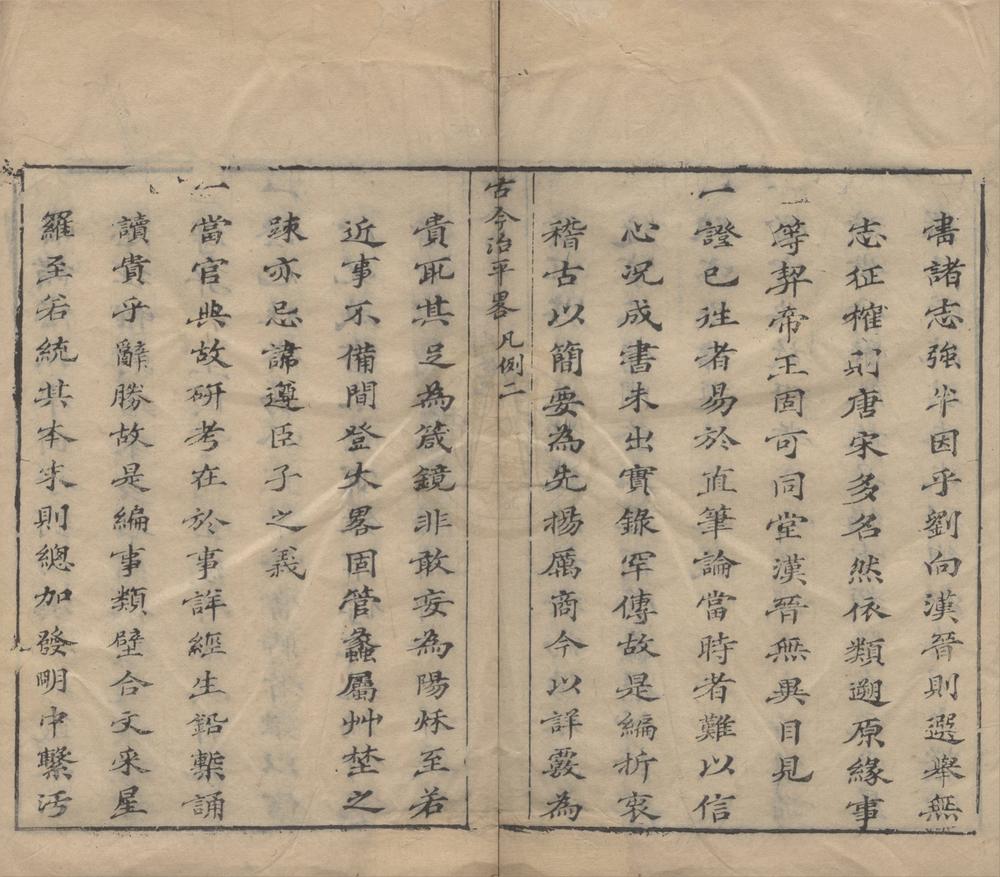 書諸志強半因乎劉向漢晉則遐舉無
志征榷則唐宋多名然依類遡原緣事
等契帝王固可同堂漢晉無異目見
一證已徃者易於直筆論當時者難以信
心况成書未出實錄罕傳故是編折衷
稽古以簡要為先揚厲商今以詳覈為
古今治平畧 凡例二
貴取其足為箴鏡非敢妄為陽秌至若
近事不備間登大畧固管蠡屬艸埜之
踈亦忌諱遵臣子之義
一當官典故研考在於事詳經生鉛槧誦
讀貴乎辭勝故是編事類壁合文采星
羅至若統其本末則總加發明中繫汚